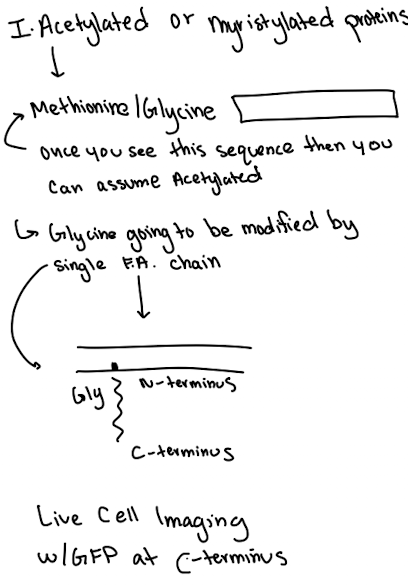 I. Acetylated or myristylated proteins
Methionine/Glycine
once you see this sequence then you
can assume Acetylated
Glycine going to be modified by
single F.A. chain
Gly N-terminus
C-terminus
Live Cell Imaging
w/GFP at C-terminus